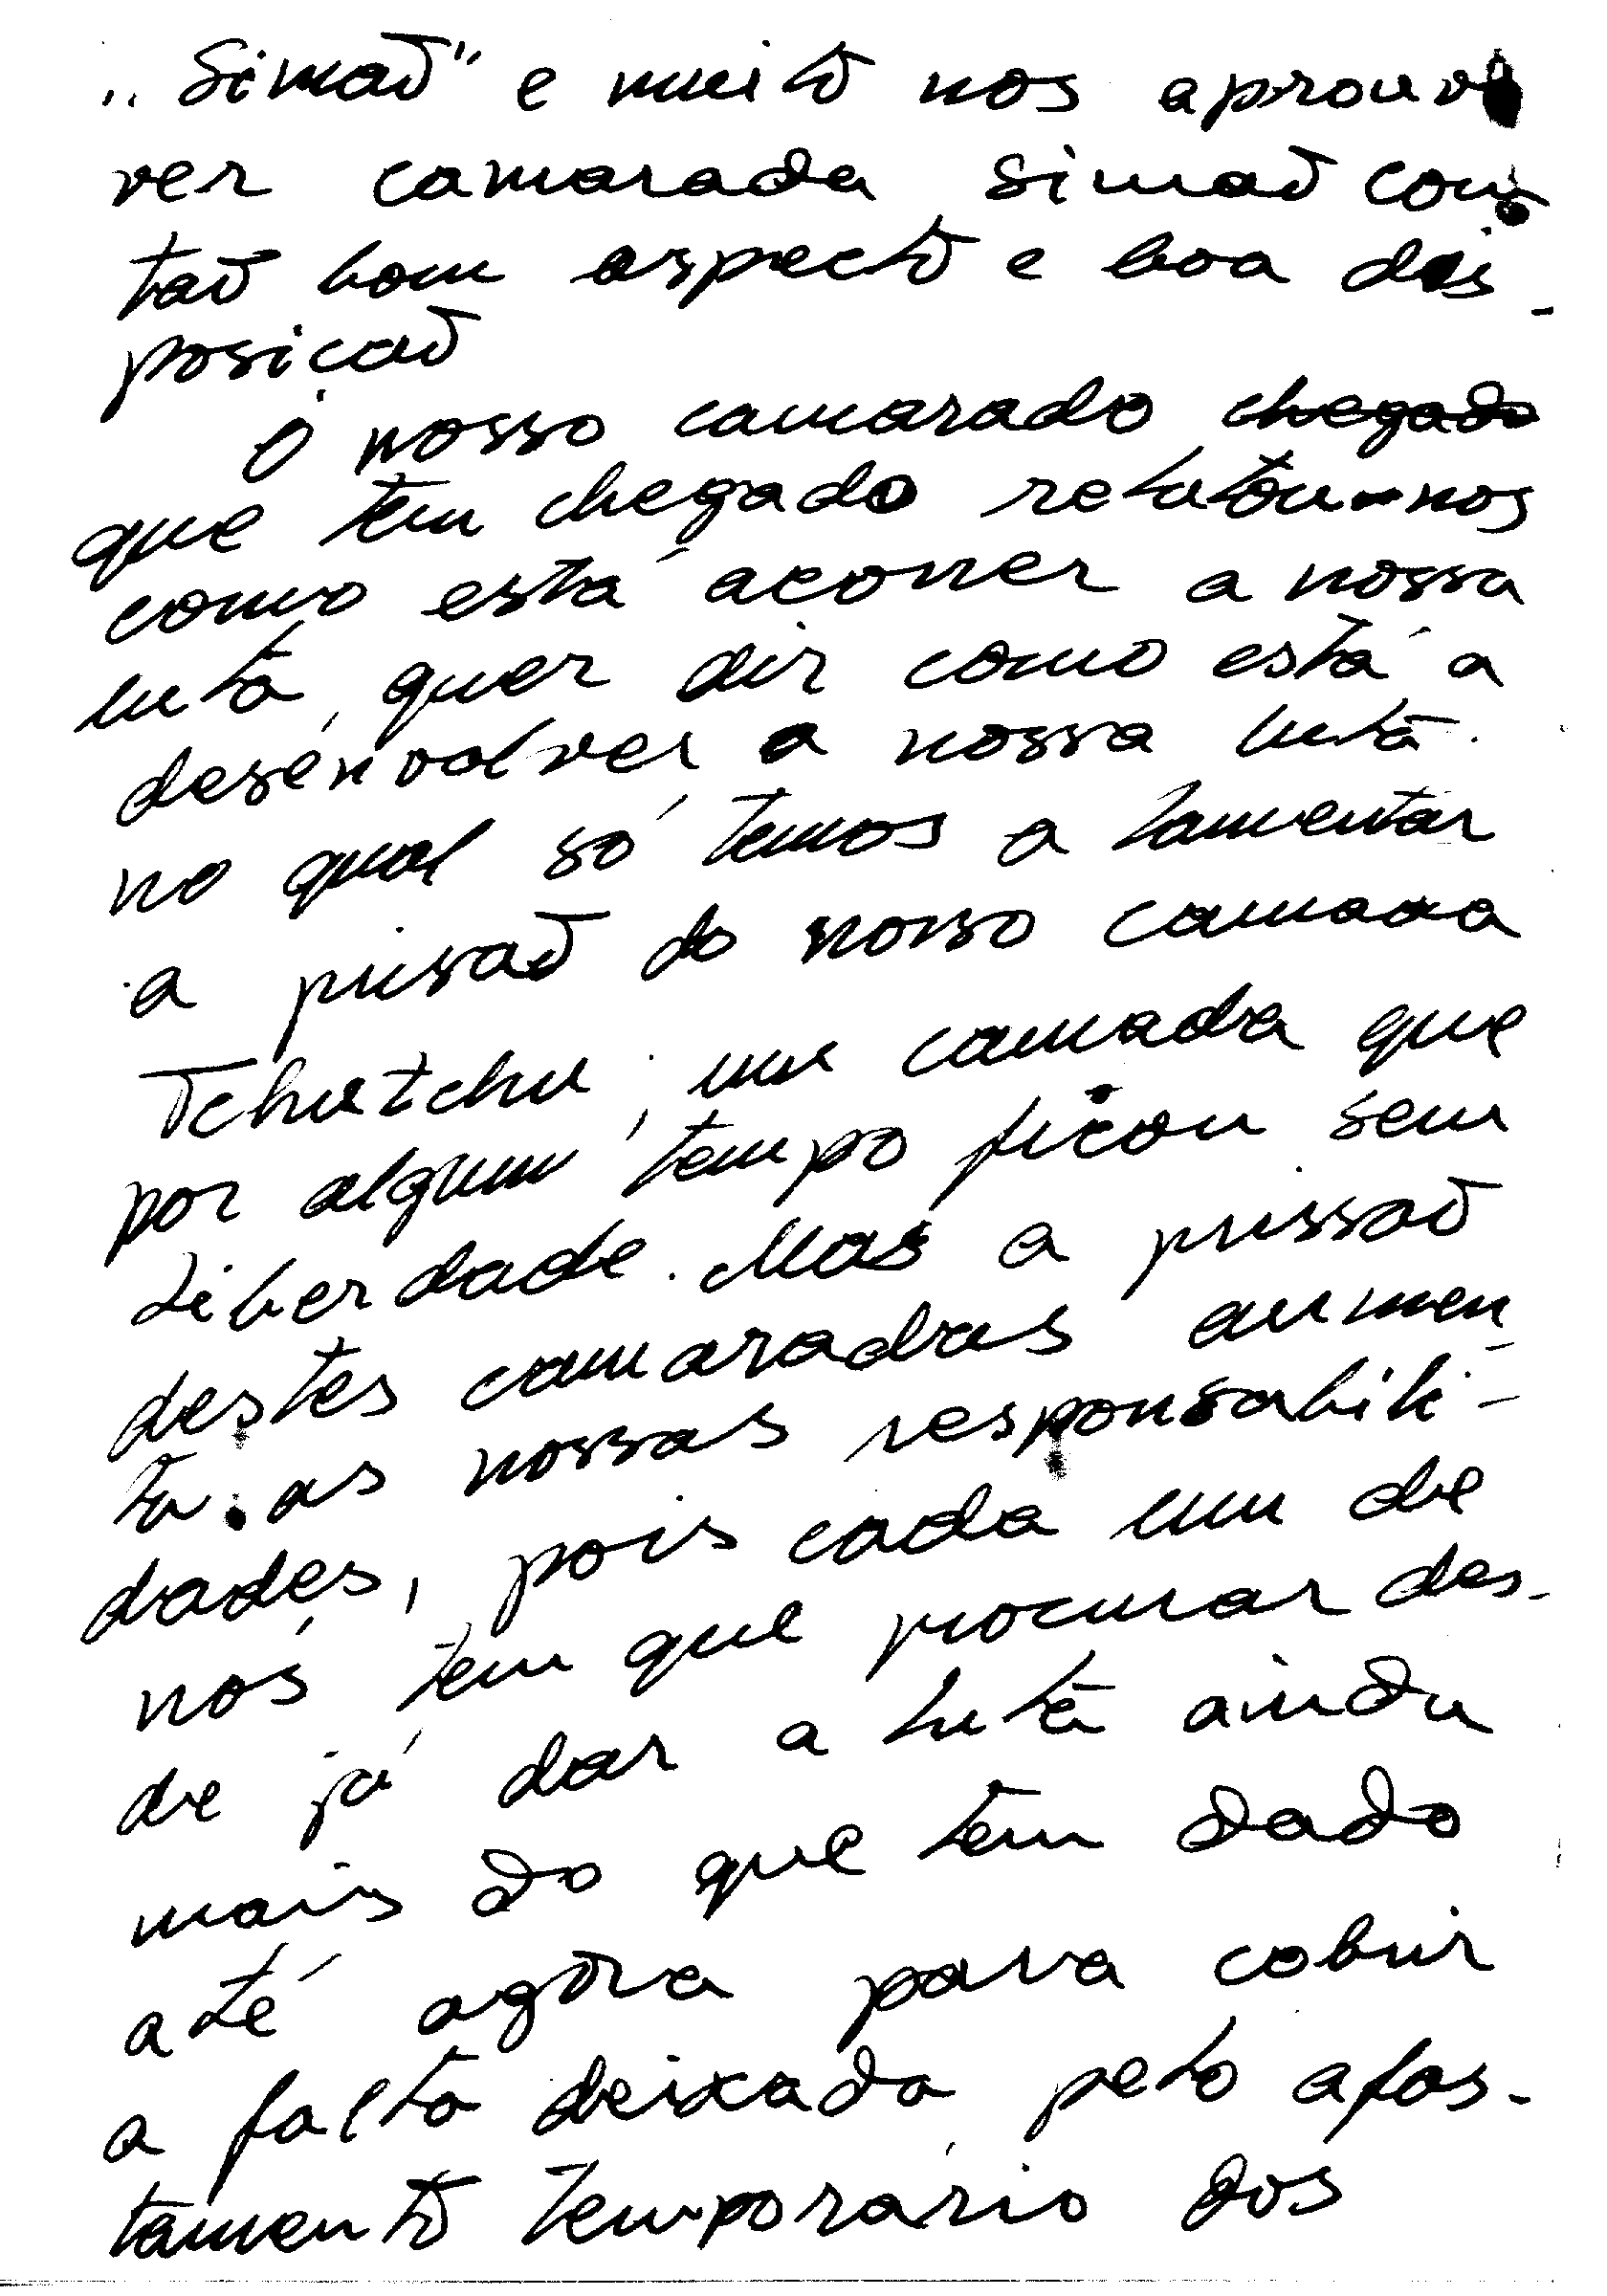 "Simão" e muito nos aprouve
ver camarada Simão com
tão bom aspecto e boa dis-
posicão
O nosso camarado chegado
que tem chegado relatou-nos
como está acorrer a nossa
luta, quer dir como está a
desenvolver a nossa luta.
no qual só temos a lamentar
a prisão do nosso camara
Tchutchu, um camada que
por algum tempo ficou sem
Liberdade. Mas a prissão
destes camaradas aumen
ta as nossas responsabili-
dades, pois cada um de
nós tem que procurar des-
de já dar a luta ainda
mais do que tem dado
até agora para cobrir
a falta deixada pelo afas-
tamento temporário dos